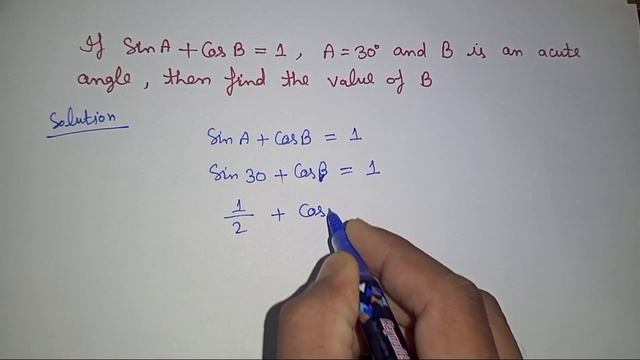 If SinA + CosB = 1, A = 30° and B is an acute
angle, then find the value of B
Solution
SinA + CosB = 1
Sin 30 + CosB = 1
1/2 + Cos